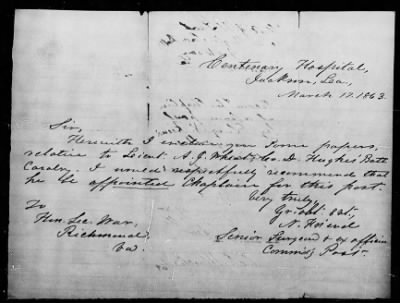 Centenary Hospital,
Jackson, La.,
March 17. 1863.
Sir,
Herewith I enclose you some papers,
relative to Lieut. A. G. Wheat, Co. D. Hughes' Batt
Cavalry. I would respectfully recommend that
he be appointed Chaplain for this post.
Very truly,
Yr. obt. svt.,
To
Hon. Sec. War,
Richmond
Va.
Senior Surgeon & ex officio
Commdg Post.